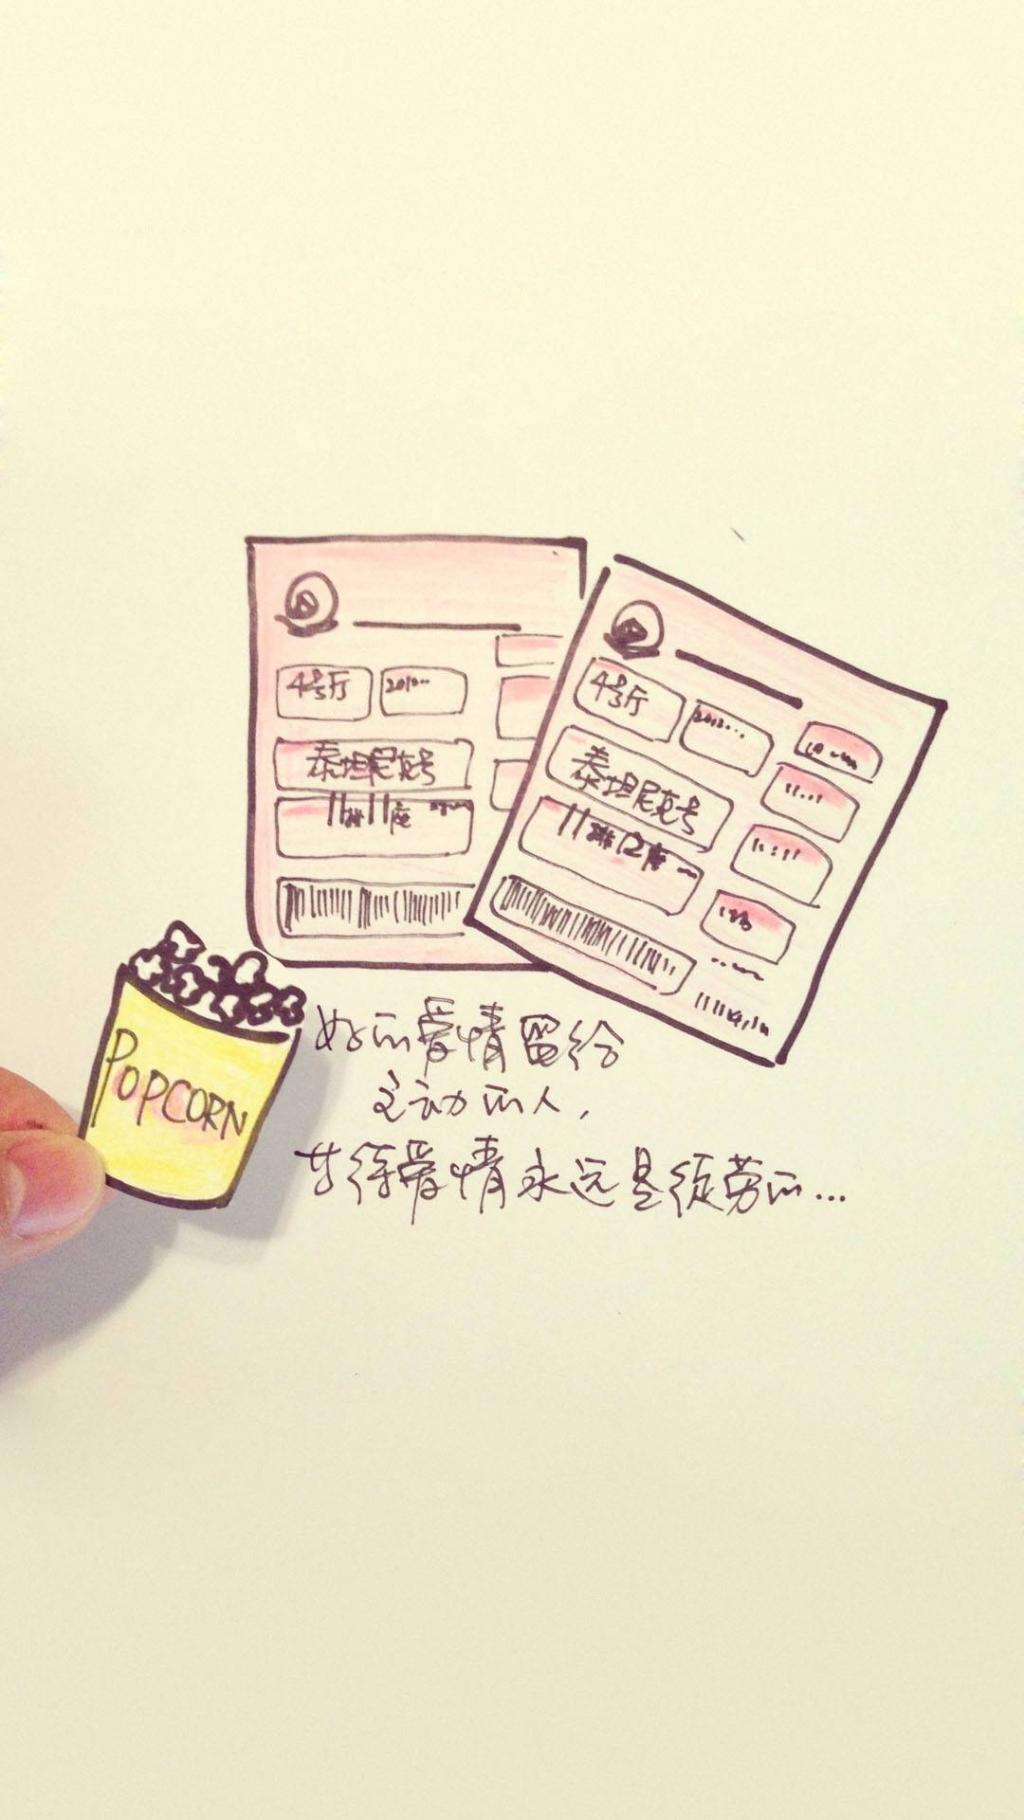 4号厅
泰坦尼克号
11排11座
4号厅
2012...
泰坦尼克号
11排12座
POPCORN
好的爱情留给
主动的人,
甘待爱情永远是徒劳的...